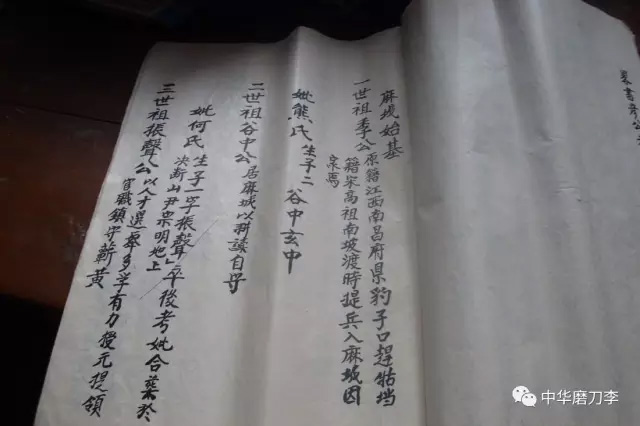 麻城始基
一世祖季公原籍江西南昌府県豹子口趕牯垱
籍宋高祖南坡渡時提兵入麻城因
家焉
妣熊氏生子二 谷中玄中
二世祖谷中公居麻城以耕讀自守
妣何氏生子一字振聲卒後考妣合葬於
決断山尹宗明地上
三世祖振聲公以人才選舉多学有力授元提領
官職鎮守蘄黄
中华磨刀李